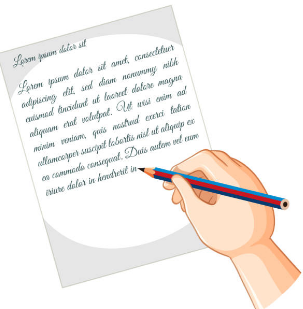 Lorem ipsum dolor sit
Lorem ipsum dolor sit amet, consectetuer
adipiscing elit, sed diam nonummy nibh
euismod tincidunt ut laoreet dolore magna
aliquam erat volutpat. Ut wisi enim ad
minim veniam, quis nostrud exerci tation
ullamcorper suscipit lobortis nisl ut aliquip ex
ea commodo consequat. Duis autem vel eum
iriure dolor in hendrerit in